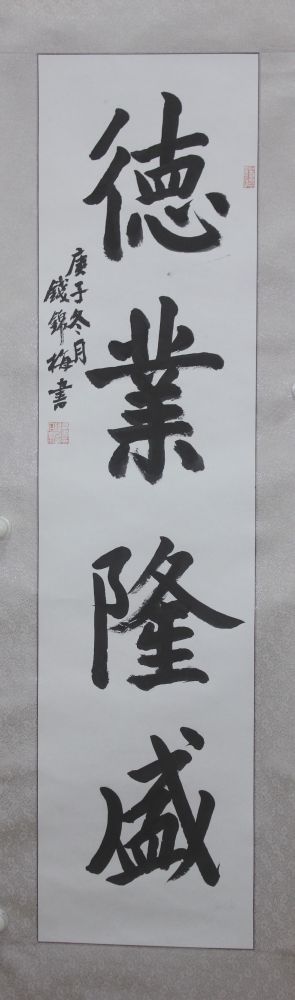 德業隆盛
庚子冬月
錢錦梅書